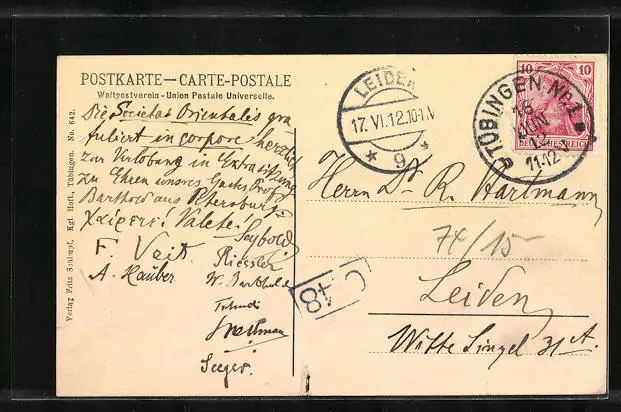 POSTKARTE — CARTE-POSTALE
Weltpostverein - Union Postale Universelle.
Die Societas Orientalis gra
tuliert in corpore herzlich
zur Verlobung in Extrasitzung
zu Ehren unsres Gastes Prof.
Barthold aus Petersburg.
χαίρετε! Valete!
Seybold
F. Veit
Riessler
A. Hauber
W. Barthold
Seeger.
Verlag Fritz Schimpf, Kgl. Hofl., Tübingen. No. 642.
LEIDEN
17.VI.12.10-11V
* 9 *
TÜBINGEN No. 1
16
JUN
12
11-12
10 10
DEUTSCHES REICH
Herrn Dr. R. Hartmann
74/15-
48
Leiden
Witte Singel 31 A.